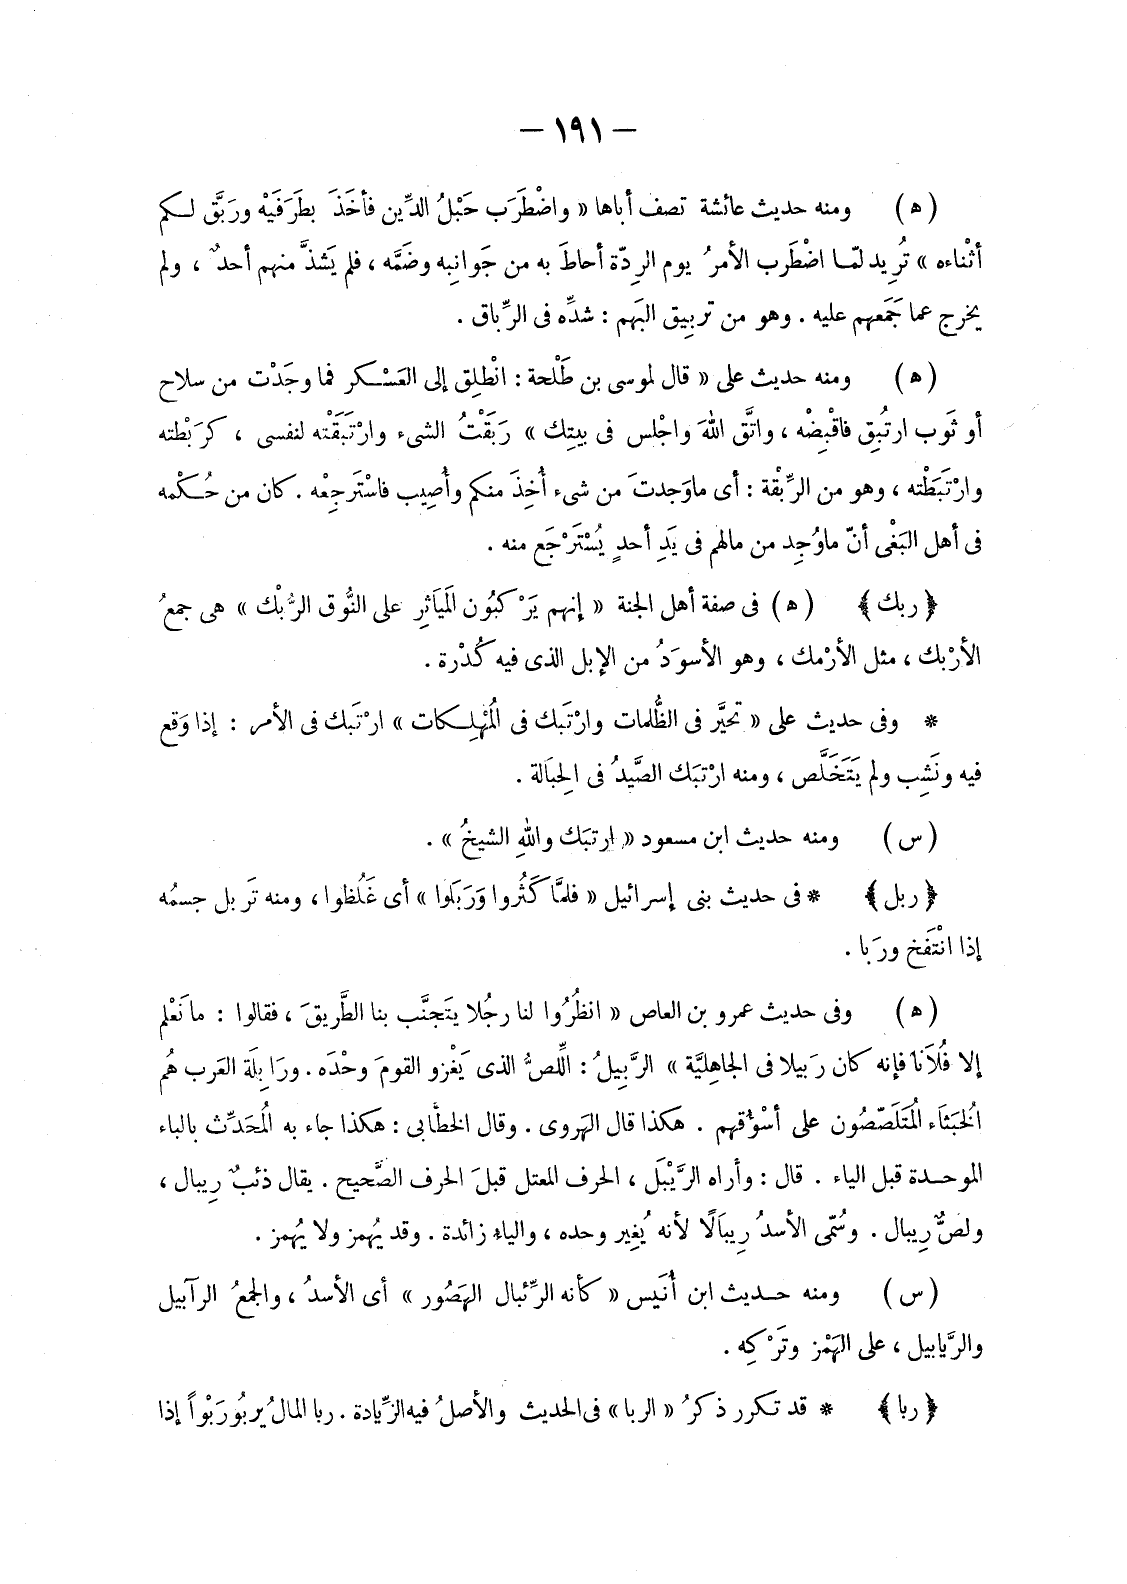 — ١٩١ —
( ﻫ ) ومنه حديث عائشة تصف أباها « واضْطَرَب حَبْلُ الدِّين فأخَذَ بطَرَفَيْه ورَبَّق لكم
أثْناءه » تُرِيد لمّا اضْطَرب الأمرُ يوم الرِدّة أحاطَ به من جَوانبِه وضَمَّه ، فلم يَشذَّ منهم أحدٌ ، ولم
يخرج عما جَمَعهم عليه . وهو من تربِيق البَهم : شدِّه فى الرِّباق .
( ﻫ ) ومنه حديث على « قال لموسى بن طَلْحة : انْطلِق إلى العَسْكر فما وجَدْت من سلاح
أو ثَوب ارتُبِق فاقْبِضْه ، واتَّق اللهَ واجْلس فى بيتِك » رَبَقْتُ الشىء وارْتَبَقْته لنفسى ، كرَبْطته
وارْتَبَطْته ، وهو من الرِّبْقة : أى ماوَجدتَ من شىء أُخِذَ منكم وأُصِيب فاسْتَرجِعْه . كان من حُكْمه
فى أهل البَغْى أنّ ماوُجِد من مالهم فى يَدِ أحدٍ يُسْتَرْجَع منه .
﴿ ربك ﴾ ( ﻫ ) فى صفة أهل الجنة « إنهم يَرْكبُون المَيَاثِرِ على النُّوق الرُّبْك » هى جمعُ
الأرْبك ، مثل الأرْمك ، وهو الأسوَدُ من الإبل الذى فيه كُدْرة .
* وفى حديث على « تحيَّر فى الظُّلمات وارْتَبك فى المُهْلِكات » ارْتَبك فى الأمر : إذا وَقع
فيه ونَشِب ولم يَتَخَلَّص ، ومنه ارْتبَك الصَّيدُ فى الحِبَالة .
( س ) ومنه حديث ابن مسعود « ارتبَك واللهِ الشيخُ » .
﴿ ربل ﴾ * فى حديث بنى إسرائيل « فلمَّا كَثُروا وَرَبَلوا » أى غَلُظوا ، ومنه تَربل جسمُه
إذا انْتَفَخ ورَبا .
( ﻫ ) وفى حديث عمرو بن العاص « انظُرُوا لنا رجُلا يتَجنَّب بنا الطَّريقَ ، فقالوا : مانَعْلم
إلا فُلَاناً فإنه كان رَبيلا فى الجاهِليَّة » الرَّبِيلُ : اللِّصُّ الذى يَغْزو القومَ وحْدَه . ورَابِلَة العَرب هُم
الخُبَثَاء المُتَلَصّصُون على أسْوُقهم . هكذا قال الهَروى . وقال الخطّابى : هكذا جاء به المُحَدِّث بالباء
الموحدة قبل الياء . قال : وأراه الرَّيْبَل ، الحرف المعتل قبلَ الحرف الصَّحيح . يقال ذئبٌ رِيبال ،
ولصٌّ رِيبال . وسُمّى الأسدُ رِيبَالًا لأنه يُغِير وحده ، والياء زائدة . وقد يُهمز ولا يُهمز .
( س ) ومنه حديث ابن أُنَيس « كأنه الرِّئبال الهَصُور » أى الأسدُ ، والجمعُ الرآبيل
والرَّيابيل ، على الهَمْز وتَرْكِه .
﴿ ربا ﴾ * قد تكرر ذكرُ « الربا » فى الحديث والأصلُ فيه الزِّيادة . ربا المالُ يربُو رَبْواً إذا